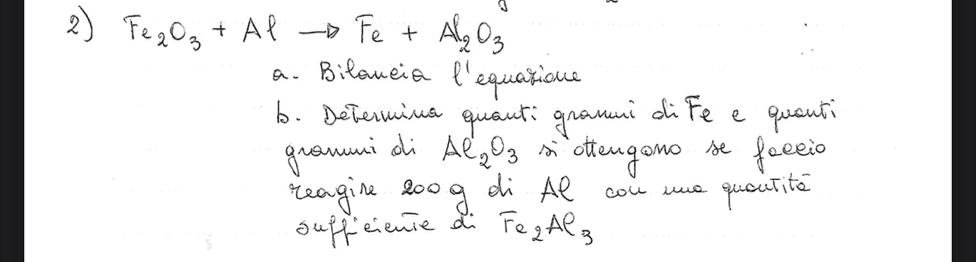 2) Fe₂O₃ + Al → Fe + Al₂O₃
a. Bilancia l'equazione
b. Determina quanti grammi di Fe e quanti
grammi di Al₂O₃ si ottengono se faccio
reagire 200 g di Al con una quantità
sufficiente di Fe₂Al₃